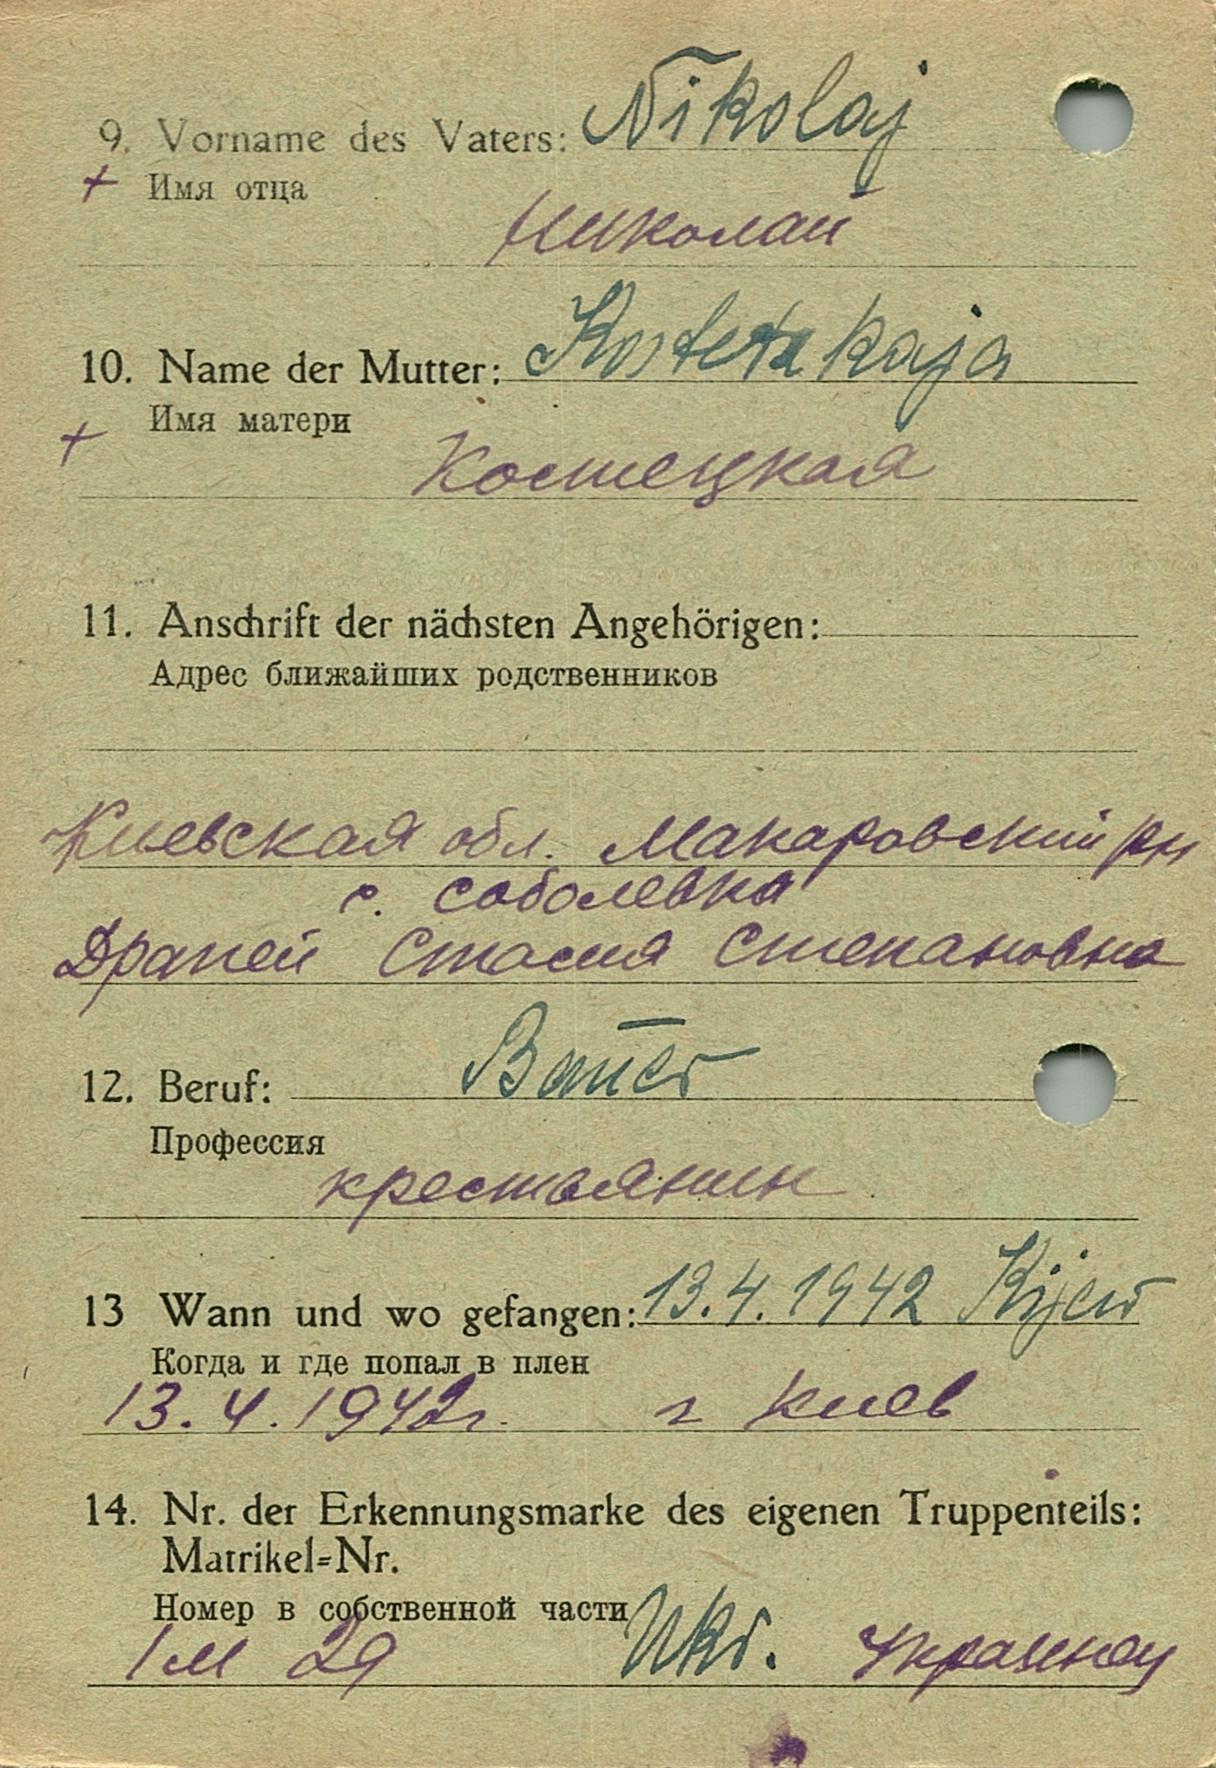 9. Vorname des Vaters: Nikolaj
+ Имя отца
Николай
10. Name der Mutter: Kostetzkaja
Имя матери
+
Костецкая
11. Anschrift der nächsten Angehörigen:
Адрес ближайших родственников
Киевская обл. Макаровский рн
с. соболевка
Драпей Стасия Степановна
12. Beruf: Bauer
Профессия
крестьянин
13 Wann und wo gefangen: 13.4.1942 Kijew
Когда и где попал в плен
13.4.1942г. г Киев
14. Nr. der Erkennungsmarke des eigenen Truppenteils:
Matrikel=Nr.
Номер в собственной части
Ukr. Украинец